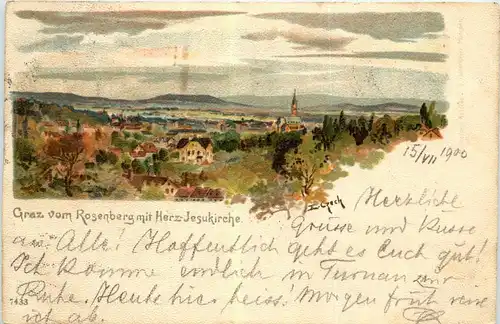 15/VII 1900
E. Groch
Graz vom Rosenberg mit Herz-Jesukirche.
Herzliche
Grüsse und Küsse
an Alle! Hoffentlich geht es Euch gut!
Ich komme endlich in Turnau zur
Ruhe. Heute hier heiss! Morgen früh reise
ich ab.
7433